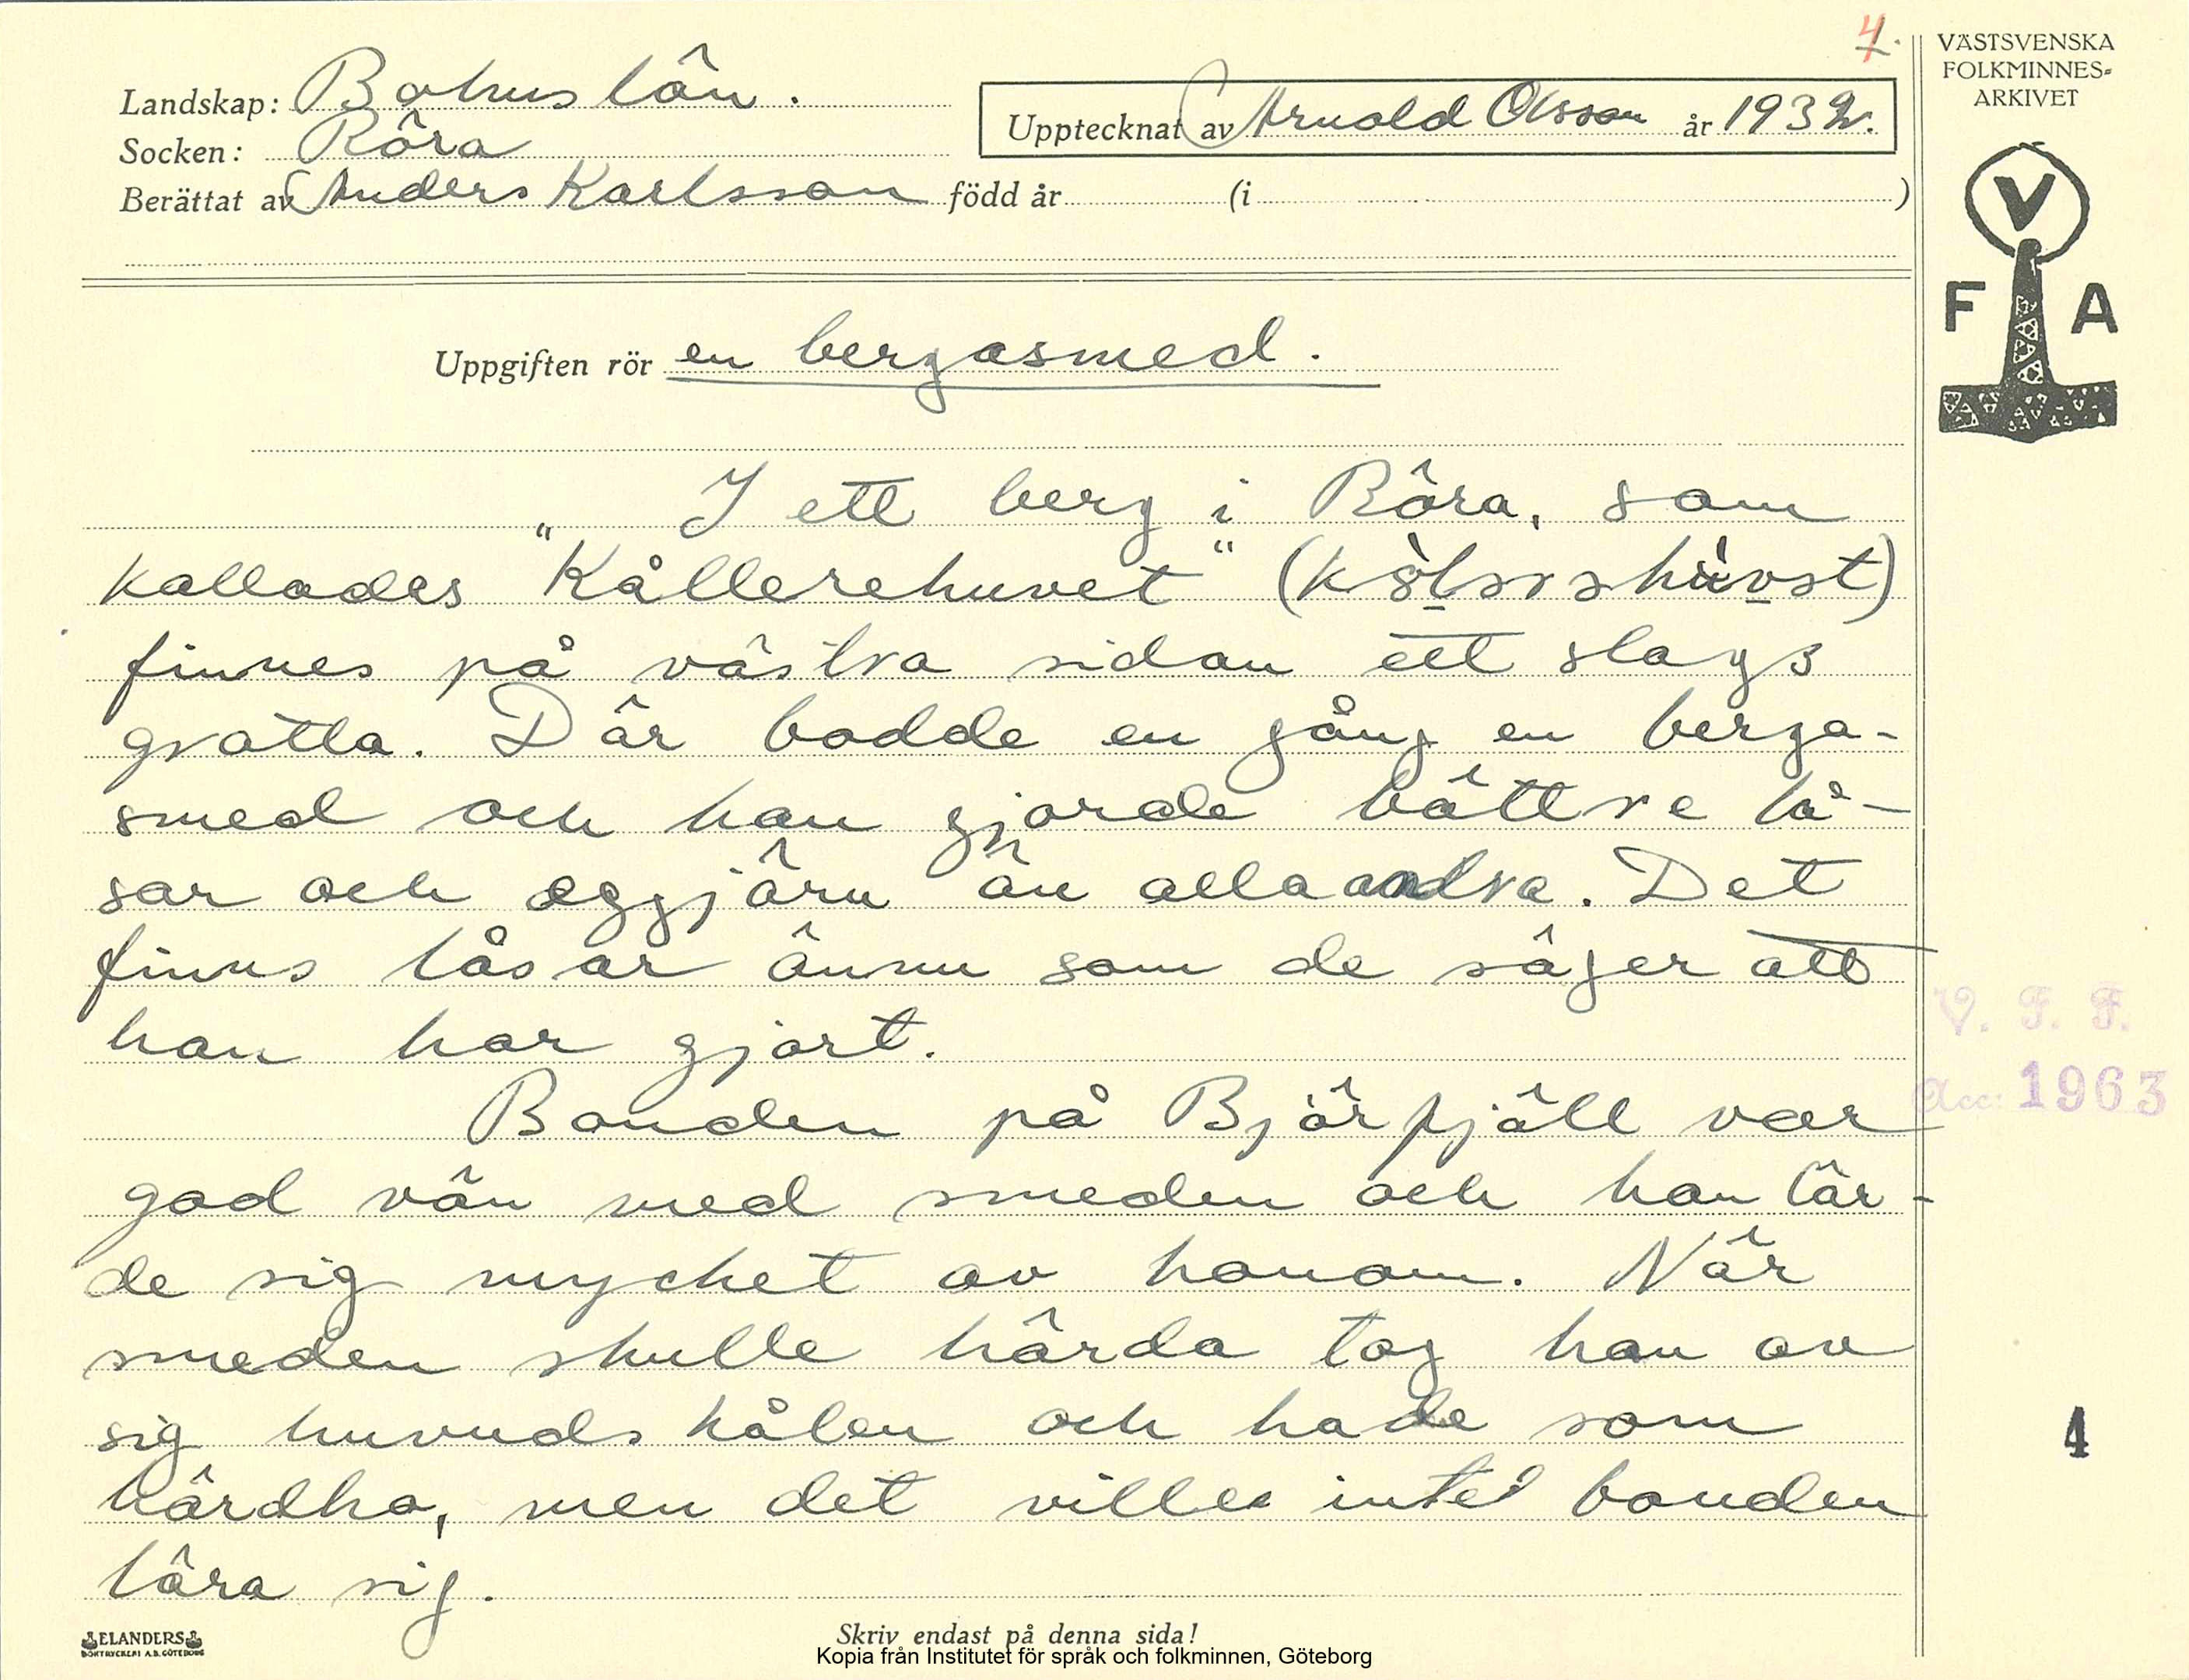 4.
VÄSTSVENSKA
FOLKMINNES-
ARKIVET
Landskap: Bohuslän.
Upptecknat av Arnold Olsson år 1932.
Socken: Röra
Berättat av Anders Karlsson född år (i )
V
F A
Uppgiften rör en bergasmed.
I ett berg i Röra, som
kallades "Kållerehuvet"
finnes på västra sidan ett slags
grotta. Där bodde en gång en berga-
smed och han gjorde bättre lå-
sar och eggjärn än alla andra. Det
finns låsar ännu som de säger att
han har gjort.
V. F. F.
Acc: 1963
Bonden på Björfjäll var
god vän med smeden och han lär-
de sig mycket av honom. När
smeden skulle härda tog han av
sig huvudskålen och hade som
härdho, men det ville inte bonden
lära sig.
4
ELANDERS
BOKTRYCKERI A.B. GÖTEBORG
Skriv endast på denna sida!
Kopia från Institutet för språk och folkminnen, Göteborg